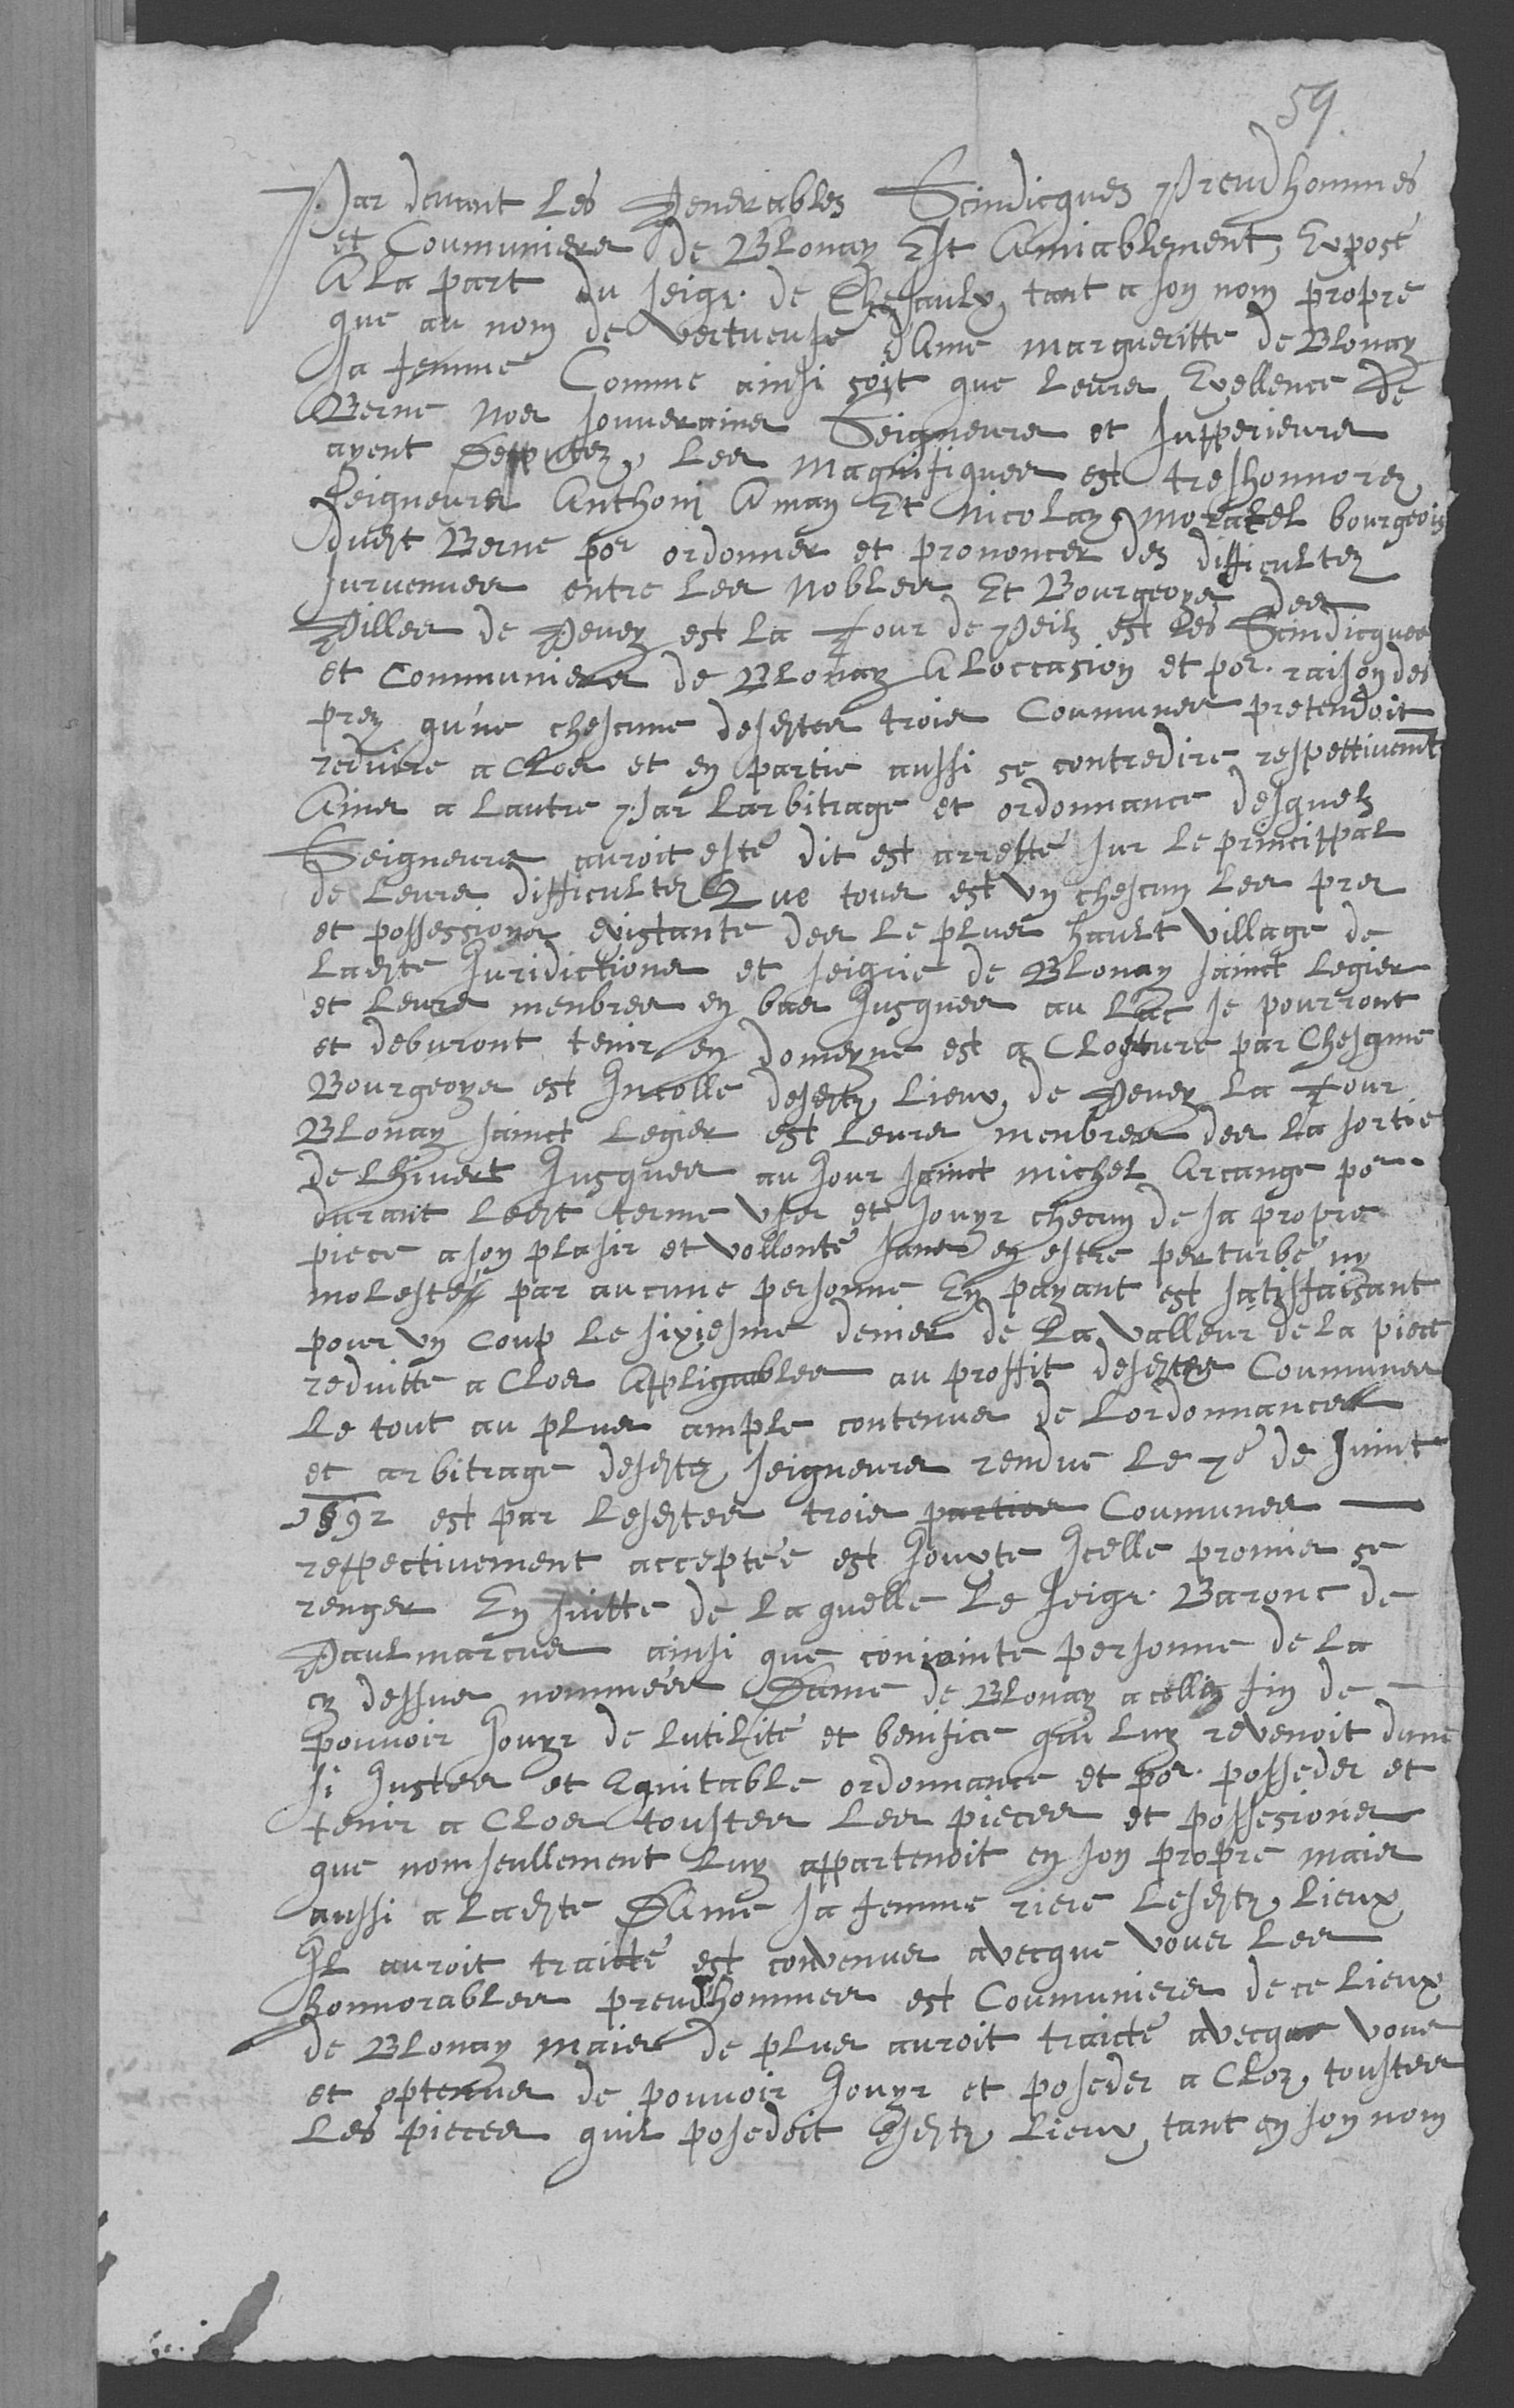 59
Par devant Les Venerables Scindicques Preudhommes
et Coumuniers de Blonay Est Amiablement, Exposé
A la part du seigr. de Chesaulx, tant a son nom propre
que au nom de vertueuse dAme margueritte de Blonay
sa femme Comme ainsi soit que leurs Exellence de
Berne nos souverains Seigneurs et supperieurs
ayent Deputez, les magnifiques est treshonnorez
Seigneurs Anthoni Amay Et Nicolaz, moratel bourgeois
dudit Berne por ordonner et prononcer des difficultez
survenues entre les nobles Et Bourgeoys des
Villes de Vevey est la Tour de Peilz est les Scindicques
et Communiers de Blonay A loccasion et por. raison des
prez qu'ne chescune desdites trois Coumunes pretendoit
reduire a Clos et en partie aussi se contredire respettivemt
Ains a lautre Par larbitrage et ordonnance desquelz
Seigneurs avroit esté dit est arresté sur le princippal
de leurs difficultez Que tous est un chescun les prez
et possessions existante des le plus hault village de
ladite Juridictions et seigrie de Blonay sainct Legier
et leurs menbres en bas Jusques au Lac se pourront
et debvront tenir en domeyne est a Closture par Chescune
Bourgeoys est Incolle desditz, lieux, de Vevey la Tour
Blonay sainct Legier est leurs menbres des la sortie
de lhivert Jusques au Jour sainct michel Arcange por
durant ledit terme user et Jouyr checun de sa propre
piece a son plasir et vollonté sans en estre perturbé ny
molesté par aucune personne En payant est satisffaisant
pour un coup le sixiesme denier de la valleur de la piece
reduitte a Clos Appliquables au proffit desdites Coumunes
Le tout au plus ample contenus de Lordonnance
et arbitrage desditz seigneurs rendue le 7e de Juint
1592 est par lesdites trois parties Coumunes
respectivement acceptée est Jouxte Icelle promis se
renger En suitte de laquelle le seigr. Barone de
Vaulmarcus ainsi que coniointe personne de la
cy dessus nommées Dame de Blonay a celle fin de
pouvoir Jouyr de lutilité et benifice qui luy revenoit dune
si Justes et Equitable ordonnance et por. posseder et
tenir a Clos toustes les pieces et possesions
que nomseullement luy appartenoit en son propre mais
aussi a ladite DAme sa femme riere lesditz, lieux
Il avroit traitté est convenus avecque vous les
honnorables preudhommes est Coumuniers de ce lieux
de Blonay mais de plus avroit traicté avecque vous
et optenus de pouvoir Jouyr et poseder a Clos, toustes
Les pieces quil posedoit esditz lieux, tant en son nom